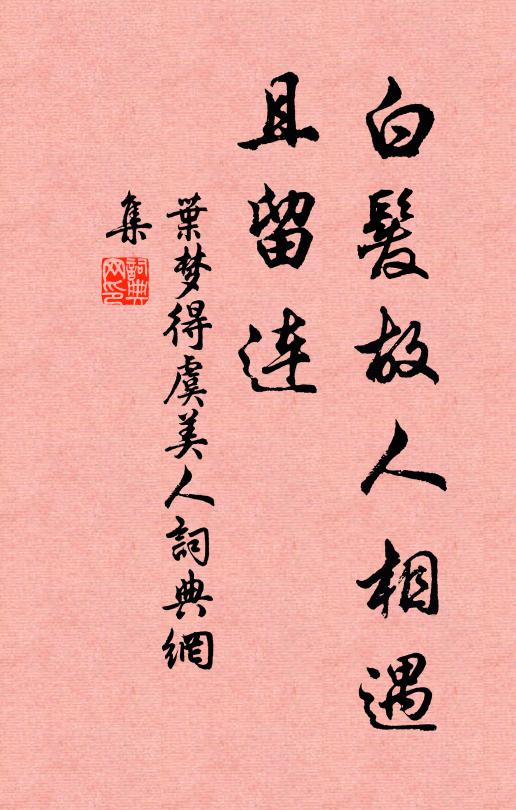 白髮故人相遇
且留连
葉梦得虞美人詞典網
集
詞典网印